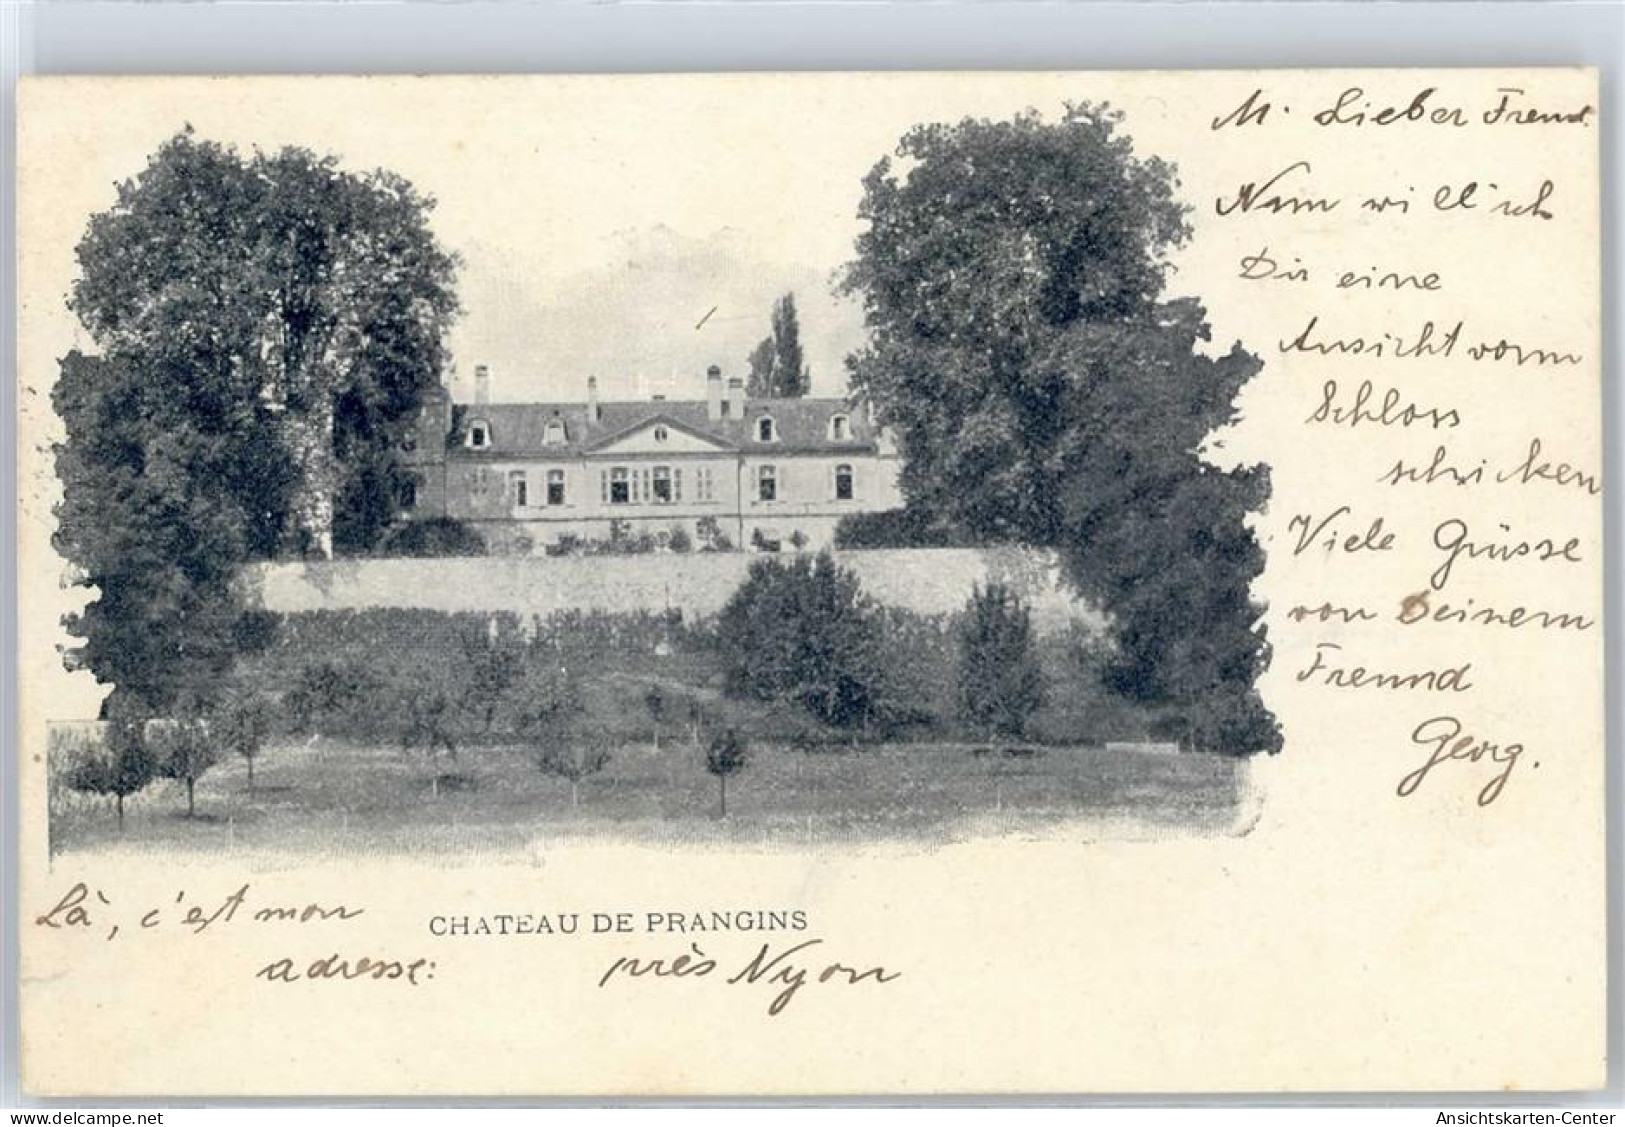 M. Lieber Freund.
Nun will ich
Dir eine
Ansicht vom
Schloss
schicken
Viele Grüsse
von Deinem
Freund
Georg.
Là, c'est mon
adresse:
CHATEAU DE PRANGINS
près Nyon
delcampe.net
Ansichtskarten-Center